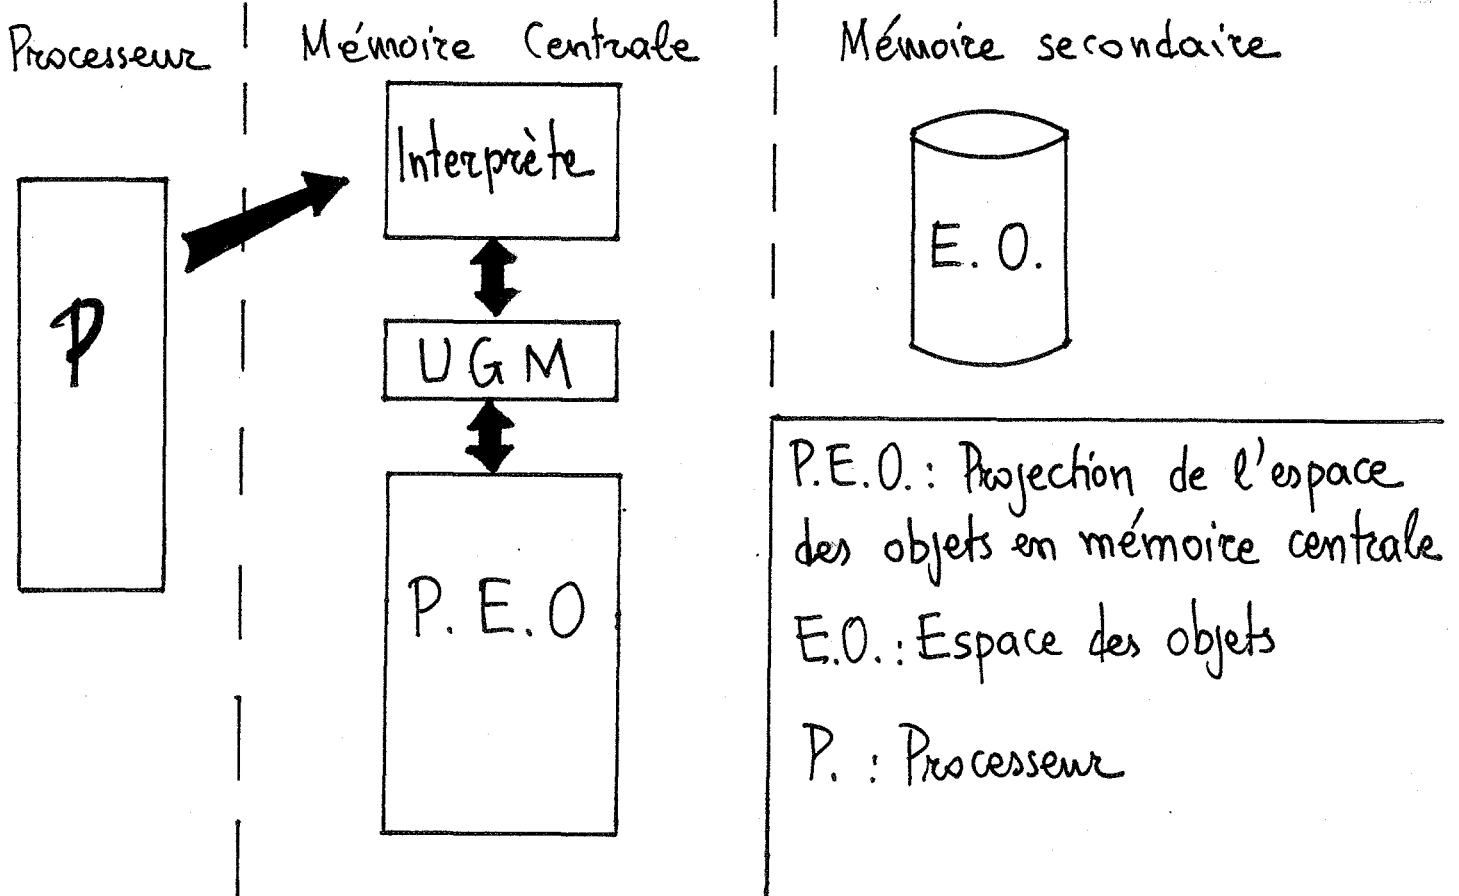 Processeur
Mémoire Centrale
Mémoire secondaire
Interprète
P
E.O.
UGM
P.E.O
P.E.O. : Projection de l'espace
des objets en mémoire centrale
E.O. : Espace des objets
P. : Processeur